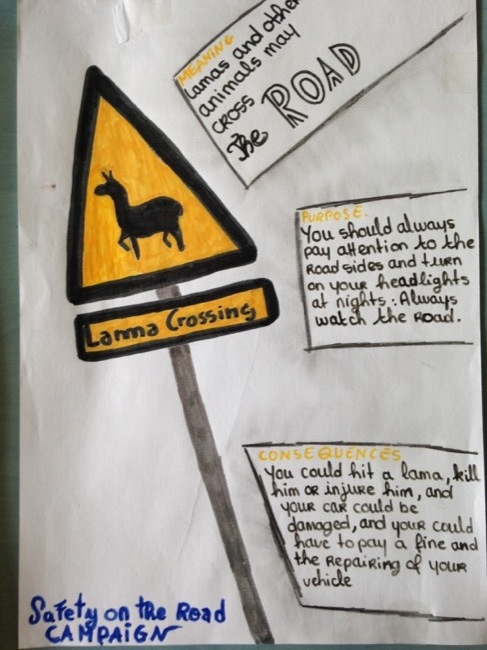 MEANING
Lamas and other
animals may
CROSS
the ROAD
Lamma Crossing
PURPOSE.
You should always
pay attention to the
Road sides and turn
on your headlights
at nights : Always
watch the Road.
CONSEQUENCES
You could hit a lama, kill
him or injure him, and
your car could be
damaged, and your could
have to pay a fine and
the repairing of your
vehicle
Safety on the Road
CAMPAIGN